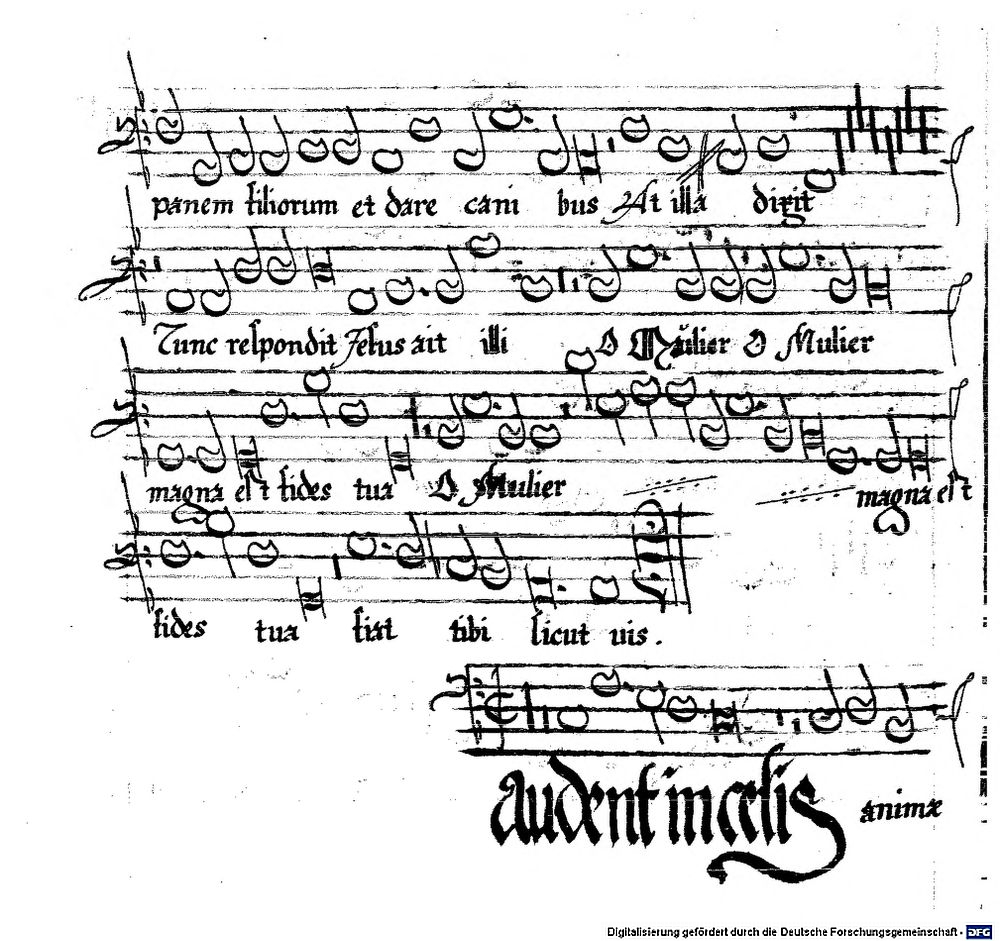 panem filiorum et dare cani bus At illa dixit
Tunc respondit Jesus ait illi O Mulier O Mulier
magna est fides tua O Mulier magna est
fides tua fiat tibi sicut uis.
audent in celis animæ
Digitalisierung gefördert durch die Deutsche Forschungsgemeinschaft - DFG